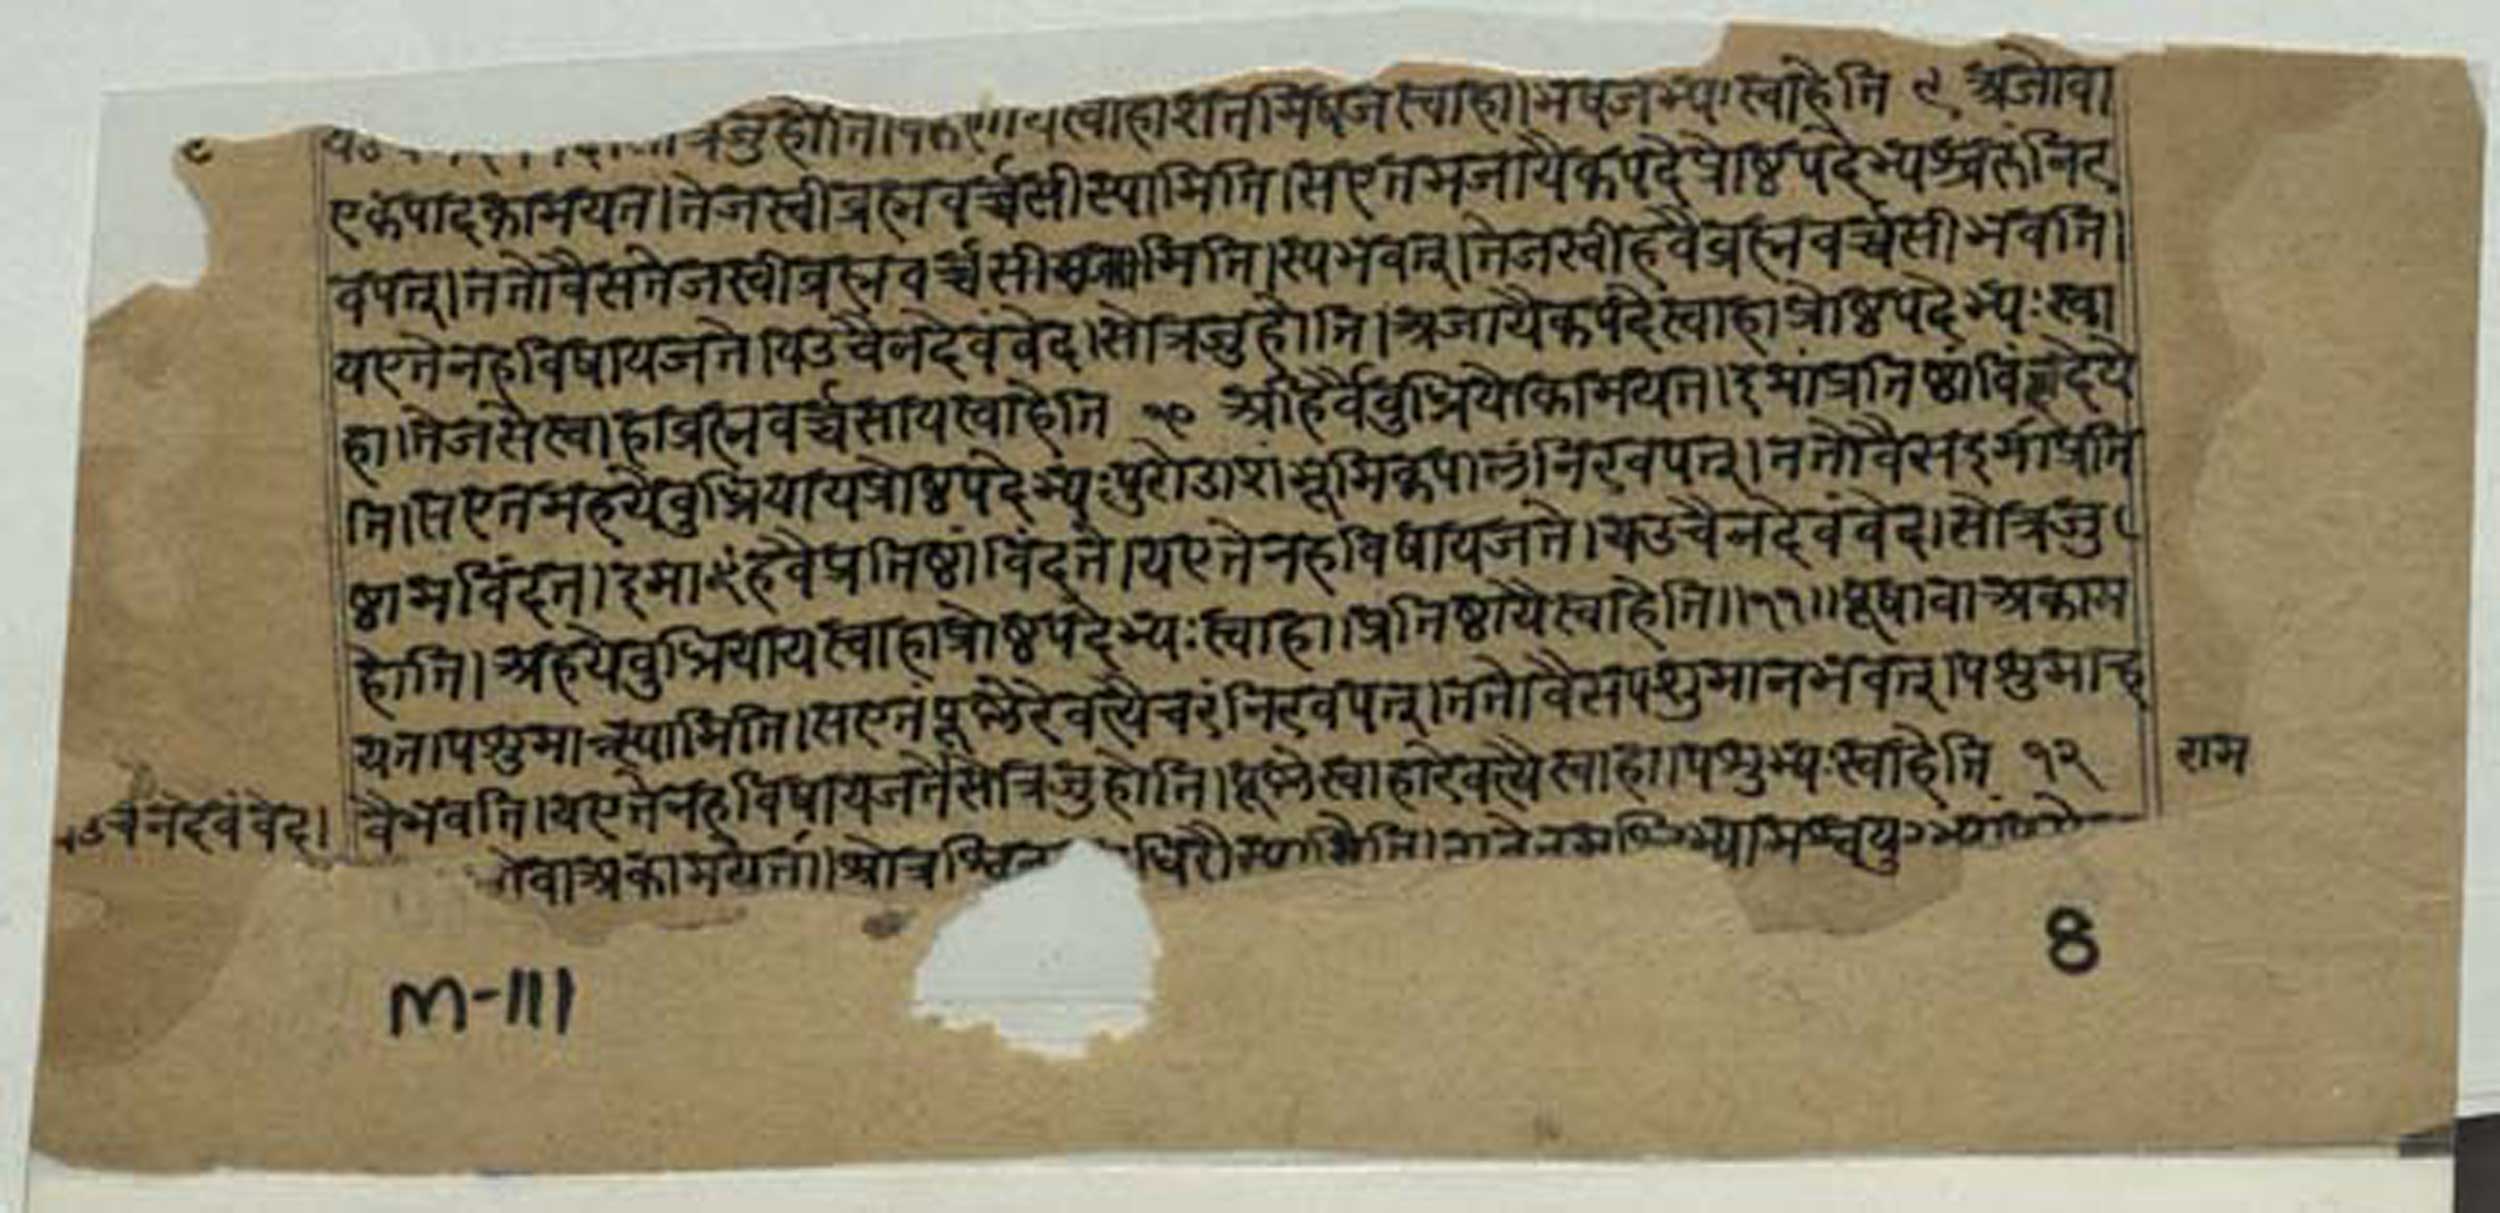 त्रजुहोति। स्वाहाशतभिषजे स्वाहा।भेषजेभ्यःस्वाहेति ९ अजोवा
एकपादकामयत।तेजस्वीब्रह्मवर्च्चसीस्यामिति।सएतमजायैकपदेप्रोष्ठपदेभ्यश्चरुंनिर
वपत्।ततोवैसतेजस्वीब्रह्मवर्च्चसी भवत्।तेजस्वीहवैब्रह्मवर्च्चसीभवति।
यएतेनहविषायजते।यउचैनदेवंवेद।सोत्रजुहोति।अजायैकपदेस्वाहाप्रोष्ठपदेभ्यःस्वा
हा।तेजसेस्वाहाब्रह्मवर्च्चसायस्वाहेति १० अहिर्वैबुध्नियोकामयत।इमांप्रतिष्ठांविंदेये
ति।सएतमहयेबुध्नियायप्रोष्ठपदेभ्यःपुरोडाशंभूमिकपालंनिरवपत्।ततोवैसइमांप्रति
ष्ठामविंदत्।इमाꣳहवैप्रतिष्ठांविंदते।यएतेनहविषायजते।यउचैनदेवंवेद।सोत्रजु
होति।अहयेबुध्नियायस्वाहाप्रोष्ठपदेभ्यःस्वाहा।प्रतिष्ठायैस्वाहेति॥११॥पूषावाअकाम
यत।पशुमान्स्यामिति।सएतंपूष्णेरेवत्यैचरुंनिरवपत्।ततोवैसपशुमानभवत्।पशुमान्ह
वैभवति।यएतेनहविषायजतेसोत्रजुहोति।पूष्णेस्वाहारेवत्यैस्वाहा।पशुभ्यःस्वाहेति १२
राम
यउचैनदेवंवेद।
वाअकामयेतां।श्रोत्रश्वि
M-111
8